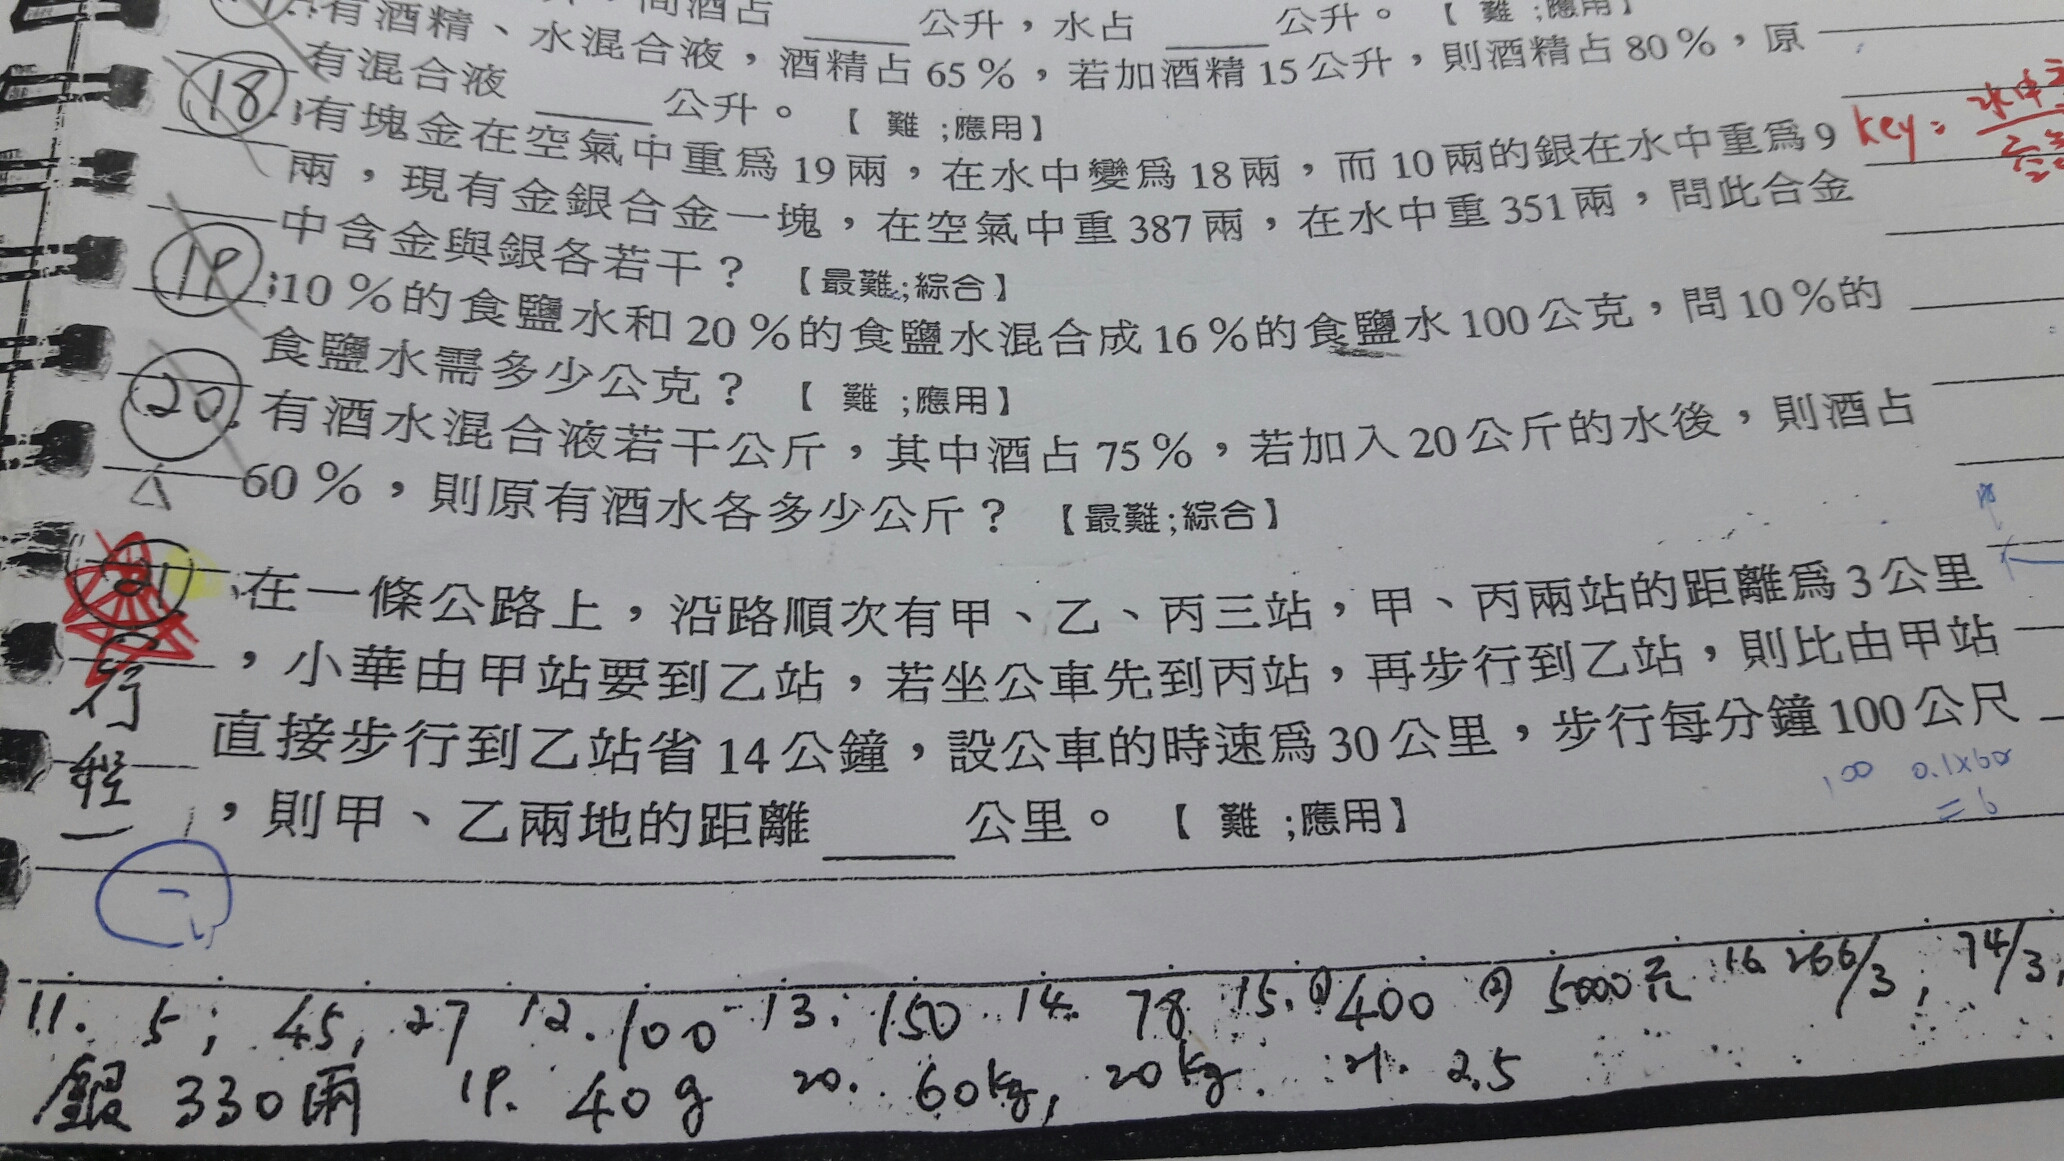 問酒占____公升，水占____公升。【 難 ;應用】
有酒精、水混合液，酒精占65%，若加酒精15公升，則酒精占80%，原
有混合液____公升。【 難 ;應用】
18 有塊金在空氣中重爲19兩，在水中變爲18兩，而10兩的銀在水中重爲9
兩，現有金銀合金一塊，在空氣中重387兩，在水中重351兩，問此合金
中含金與銀各若干？【最難;綜合】
key: 水中
19 10%的食鹽水和20%的食鹽水混合成16%的食鹽水100公克，問10%的
食鹽水需多少公克？【 難 ;應用】
20. 有酒水混合液若干公斤，其中酒占75%，若加入20公斤的水後，則酒占
60%，則原有酒水各多少公斤？【最難;綜合】
21 在一條公路上，沿路順次有甲、乙、丙三站，甲、丙兩站的距離爲3公里
，小華由甲站要到乙站，若坐公車先到丙站，再步行到乙站，則比由甲站
直接步行到乙站省14公鐘，設公車的時速爲30公里，步行每分鐘100公尺
，則甲、乙兩地的距離____公里。【 難 ;應用】
100 0.1×60
=6
11. 5; 45, 27 12. 100 13. 150 14. 78 15. ① 400 ② 5000元 16. 266/3, 74/3,
銀 330兩 19. 40g 20. 60kg, 20kg. 21. 2.5